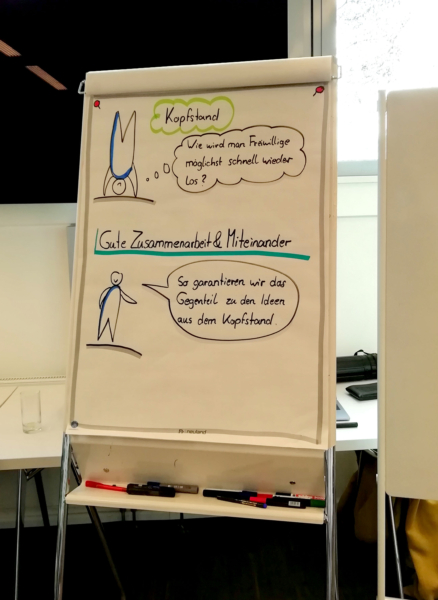 Kopfstand
Wie wird man Freiwillige
möglichst schnell wieder
los?
Gute Zusammenarbeit & Miteinander
So garantieren wir das
Gegenteil zu den Ideen
aus dem Kopfstand.
neuland